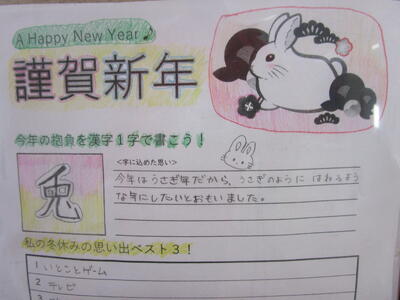 A Happy New Year♪
謹賀新年
今年の抱負を漢字1字で書こう!
<字に込めた思い>
兎
今年はうさぎ年だから、うさぎのように はねるよう
な年にしたいとおもいました。
私の冬休みの思い出ベスト3!
1 いとことゲーム
2 テレビ
3